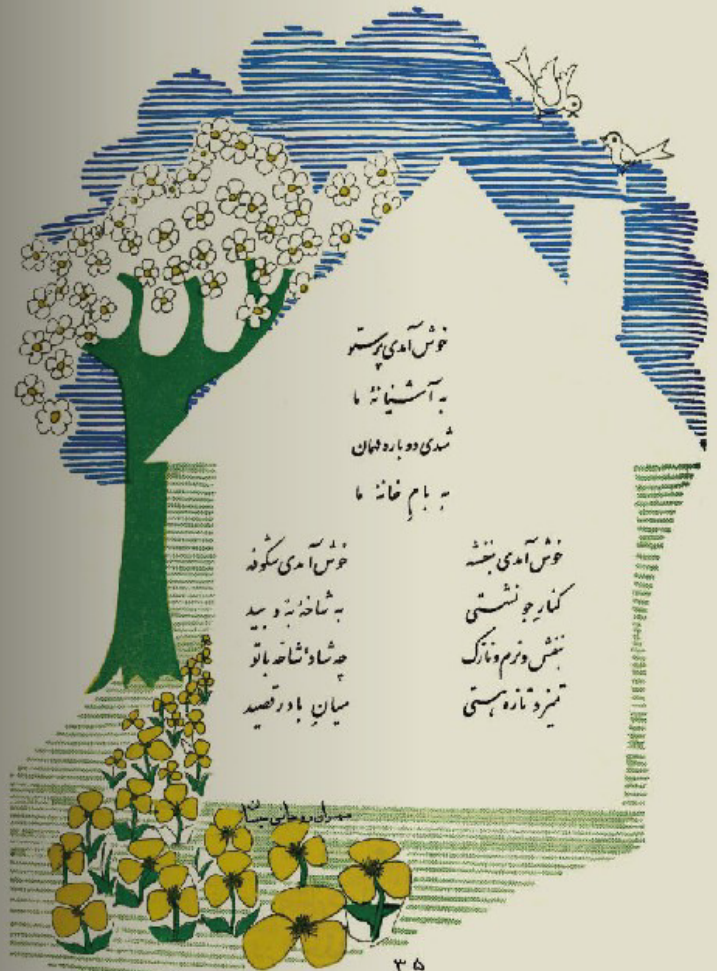 خوش آمدی پرستو
به آشیانهٔ ما
شدی دوباره مهمان
به بامِ خانهٔ ما
خوش آمدی بنفشه
کنارِ جو نشستی
بنفش و نرم و نازک
تمیز و تازه هستی
خوش آمدی شکوفه
به شاخهٔ به و بید
چه شاد شاخه با تو
میانِ باد رقصید
۳۵